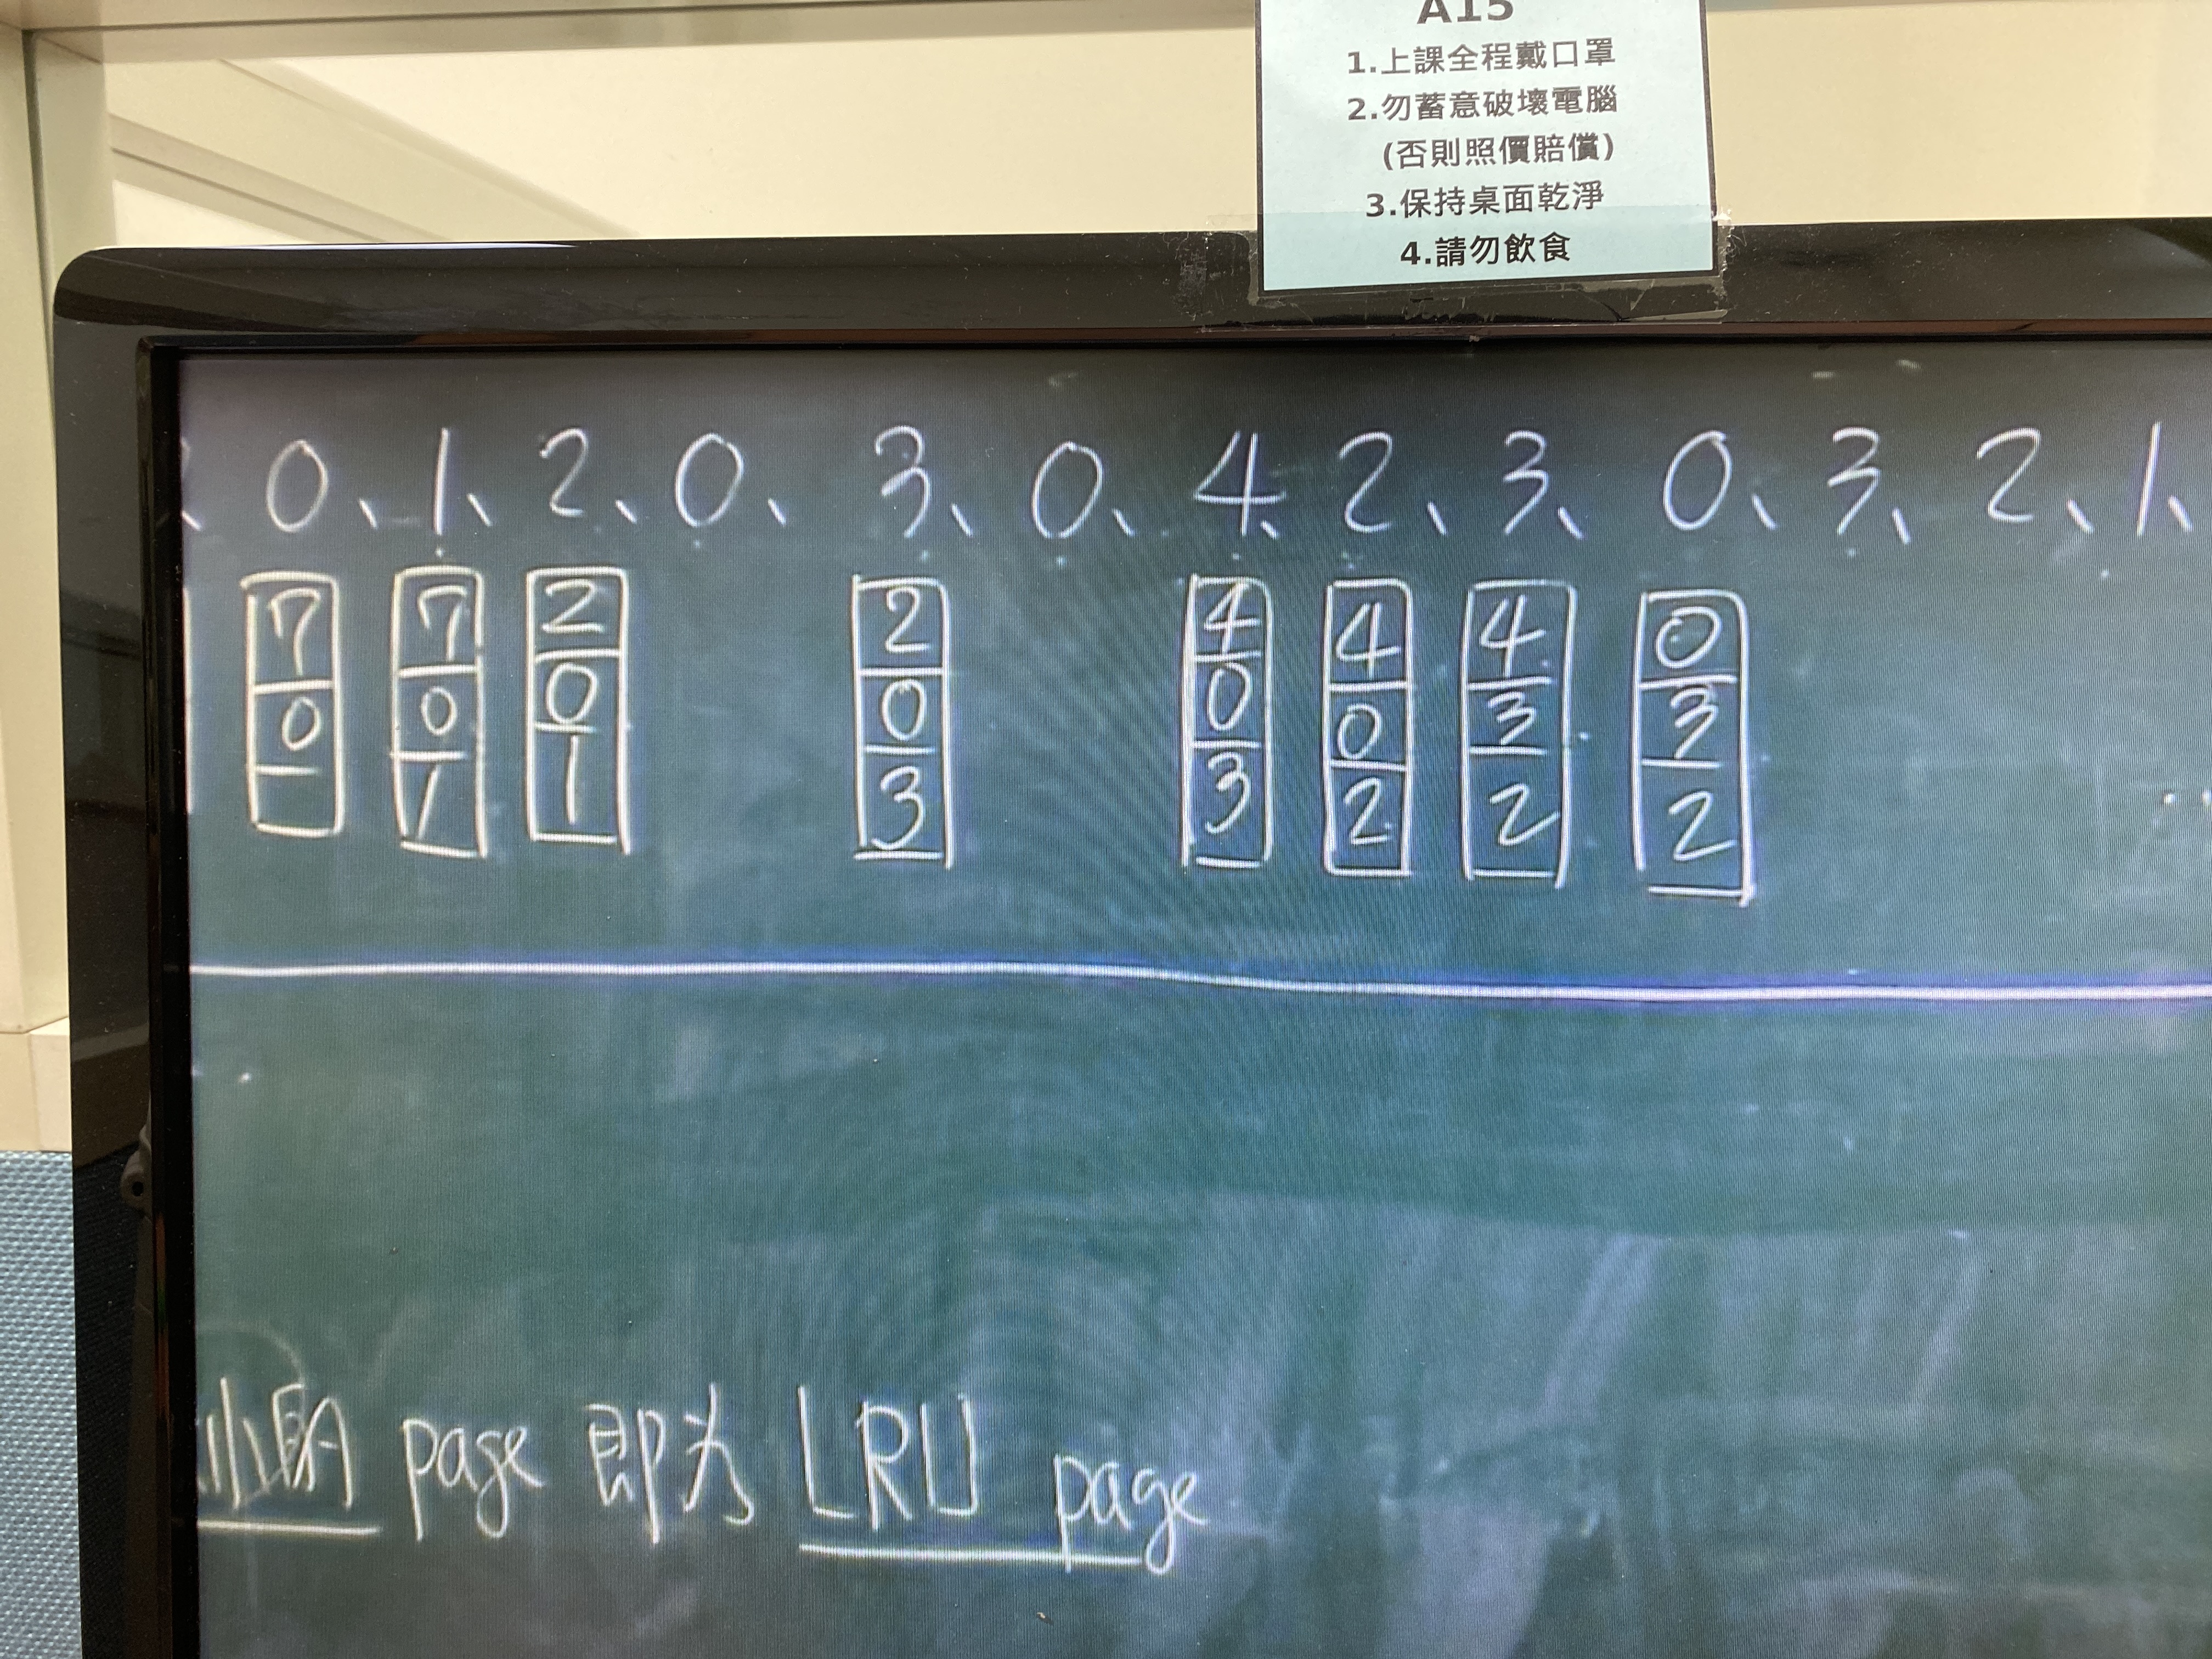 A15
1.上課全程戴口罩
2.勿蓄意破壞電腦
(否則照價賠償)
3.保持桌面乾淨
4.請勿飲食
0、1、2、0、3、0、4、2、3、0、3、2、1、
7 7 2 2 4 4 4 0
0 0 0 0 0 0 3 3
1 1 3 3 2 2 2
小的 page 即为 LRU page